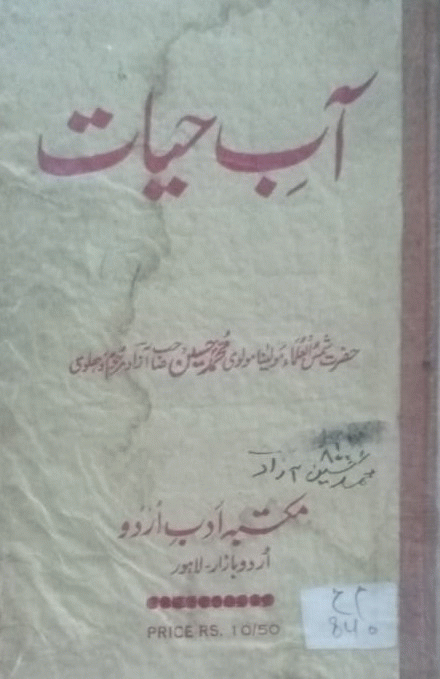 آبِ حیات
حضرت شمس العلماء مولینا مولوی محمد حسین صاحب آزاد مرحوم دہلوی
محمد حسین آزاد
مکتبہ ادبِ اُردو
اُردو بازار - لاہور
PRICE RS. 10/50
م ح
840